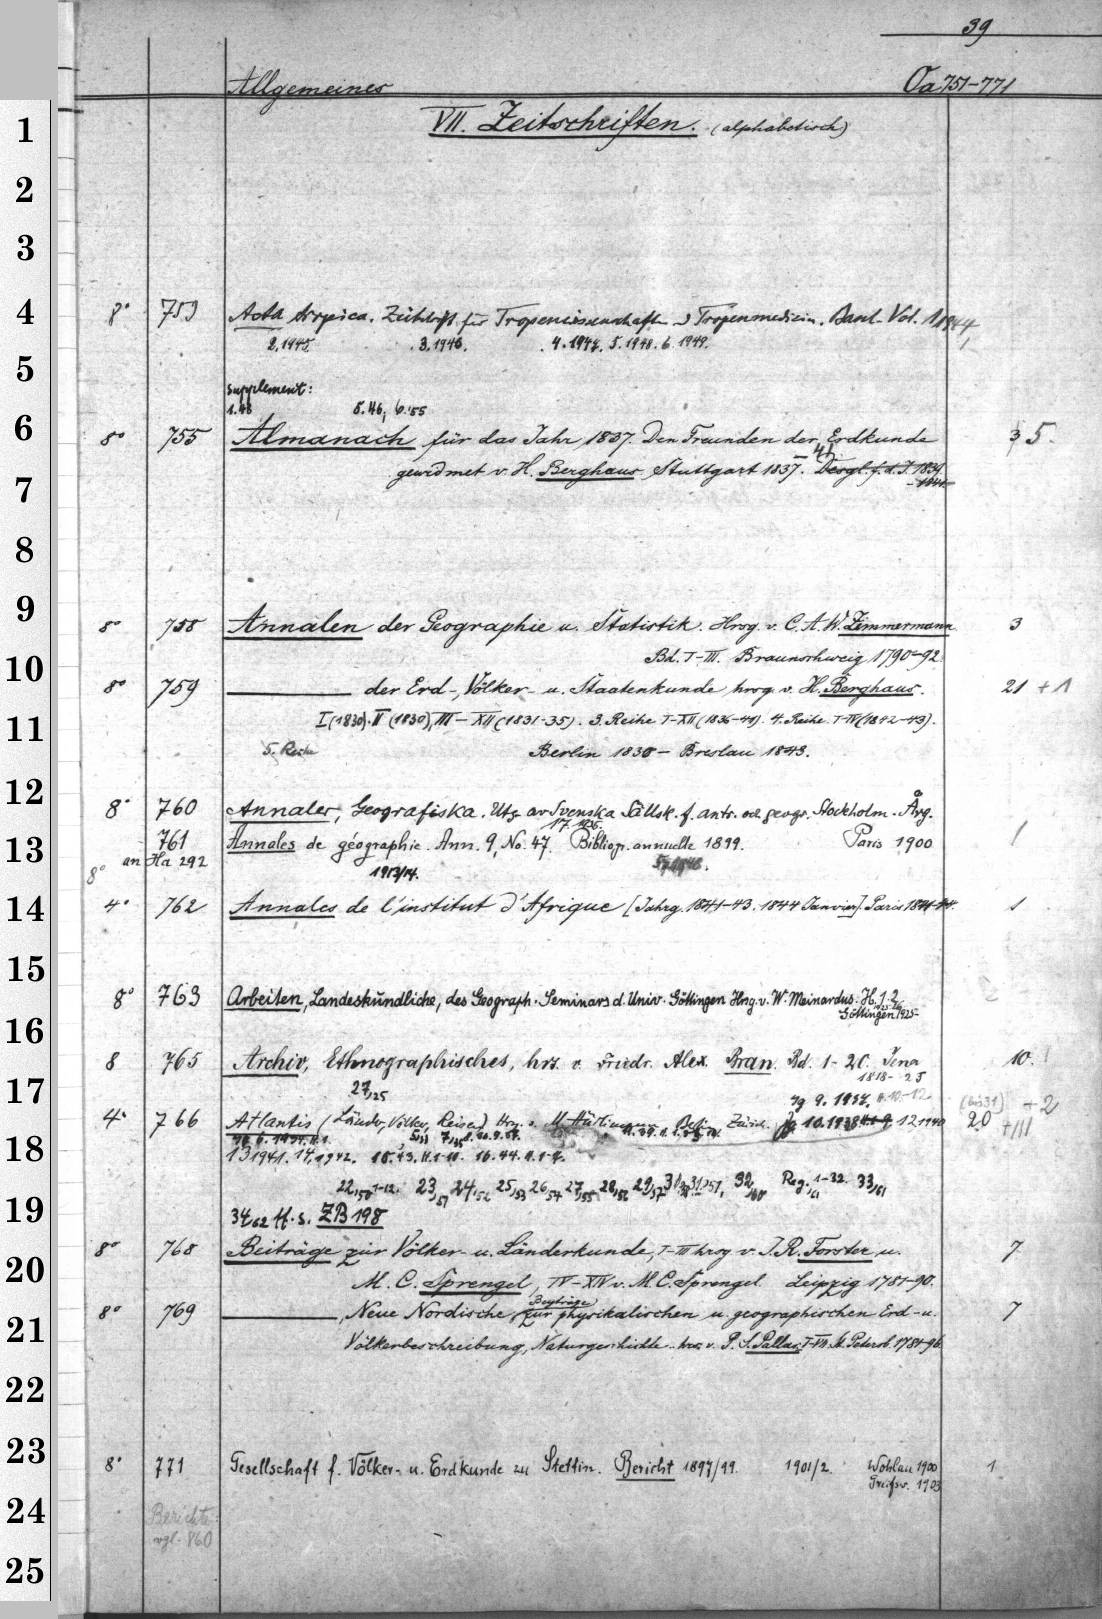 39
Allgemeines Oa 751-771
VII. Zeitschriften. (alphabetisch)
1
2
3
4
5
6
7
8
9
10
11
12
13
14
15
16
17
18
19
20
21
22
23
24
25
8° 753 Acta tropica. Zeitschrift für Tropenwissenschaft u. Tropenmedizin. Basel. Vol. 1, 1944,
2.1945. 3.1946. 4.1947. 5.1948. 6.1949. 1
Supplement:
1.48 5.46, 6.55
8° 755 Almanach für das Jahr 1837. Den Freunden der Erdkunde 3 5.
gewidmet v. H. Berghaus. Stuttgart 1837. - 41. Desgl. f. d. J. 1839.
- 1841
8° 758 Annalen der Geographie u. Statistik. Hrsg. v. C. A. W. Zimmermann 3
Bd. I-III. Braunschweig 1790-92.
8° 759 der Erd-, Völker- u. Staatenkunde hrsg. v. H. Berghaus. 21 + 1
I (1830). II (1830), III-XII (1831-35). 3. Reihe I-XII (1836-41). 4. Reihe I-IV (1842-43).
5. Reihe Berlin 1830 - Breslau 1843.
8° 760 Annaler, Geografiska. Utg. av Svenska Sällsk. f. antr. och geogr. Stockholm. Årg.
17. 1935.
761 Annales de géographie. Ann. 9, No. 47. Bibliogr. annuelle 1899. Paris 1900 1
8° an Ha 292
1913/14.
4° 762 Annales de l'institut d'Afrique [Jahrg. 1841-43. 1844 Janvier]. Paris 1841-44. 1
8° 763 Arbeiten, Landeskundliche, des Geograph. Seminars d. Univ. Göttingen Hrsg. v. W. Meinardus. H. 1. 2
Göttingen 1925-
8 765 Archiv, Ethnographisches, hrs. v. Friedr. Alex. Bran. Bd. 1-20. Jena 10.
1818-25
27,25 Jg 9. 1937, H. 10-12. (bis 31)
4° 766 Atlantis (Länder, Völker, Reisen) Hrg. v. M. Hürlimann. Berlin Zürich. Jg 10.1938 12.1940 20 + 2
+III
13 1941. 14,1942. 15.43. H. 1-10. 16.44. H. 1-7.
22,50 1-12. 23,51 24,52 25,53 26,54 27,55 28,56 29,57 32,60 Reg. 1-32. 33,61
34,62 ff. s. ZB 198
8° 768 Beiträge zur Völker- u. Länderkunde, I-III hrsg. v. J. R. Forster u. 7
M. C. Sprengel, IV-XIV v. M. C. Sprengel Leipzig 1781-90.
8° 769 , Neue Nordische Beyträge zur physikalischen u. geographischen Erd- u. 7
Völkerbeschreibung, Naturgeschichte. hrs. v. P. S. Pallas. I-VII. St. Petersb. 1781-96.
8° 771 Gesellschaft f. Völker- u. Erdkunde zu Stettin. Bericht 1897/99. 1901/2. Wohlau 1900 1
Greifsw. 1903
Berichte:
vgl. 860